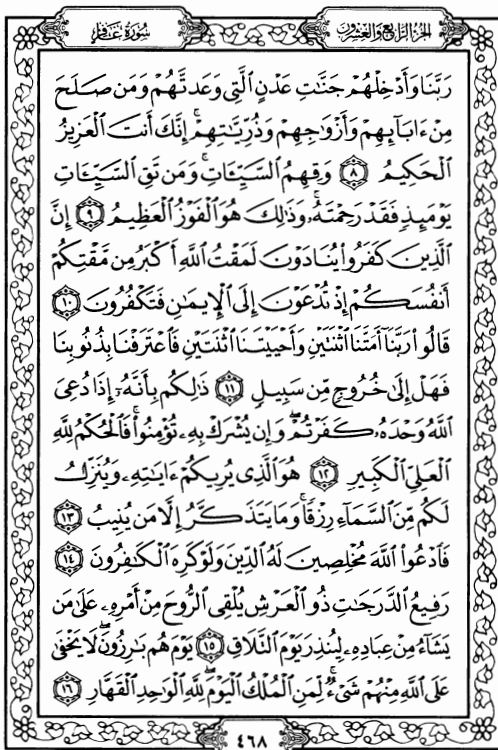 سُورَةُ غَافِرٍ
الجُزْءُ الرَّابِعُ وَالعِشْرُونَ
رَبَّنَا وَأَدْخِلْهُمْ جَنَّٰتِ عَدْنٍ ٱلَّتِى وَعَدتَّهُمْ وَمَن صَلَحَ
مِنْ ءَابَآئِهِمْ وَأَزْوَٰجِهِمْ وَذُرِّيَّٰتِهِمْ ۚ إِنَّكَ أَنتَ ٱلْعَزِيزُ
ٱلْحَكِيمُ ٨ وَقِهِمُ ٱلسَّيِّـَٔاتِ ۚ وَمَن تَقِ ٱلسَّيِّـَٔاتِ
يَوْمَئِذٍ فَقَدْ رَحِمْتَهُۥ ۚ وَذَٰلِكَ هُوَ ٱلْفَوْزُ ٱلْعَظِيمُ ٩ إِنَّ
ٱلَّذِينَ كَفَرُوا۟ يُنَادَوْنَ لَمَقْتُ ٱللَّهِ أَكْبَرُ مِن مَّقْتِكُمْ
أَنفُسَكُمْ إِذْ تُدْعَوْنَ إِلَى ٱلْإِيمَٰنِ فَتَكْفُرُونَ ١٠
قَالُوا۟ رَبَّنَآ أَمَتَّنَا ٱثْنَتَيْنِ وَأَحْيَيْتَنَا ٱثْنَتَيْنِ فَٱعْتَرَفْنَا بِذُنُوبِنَا
فَهَلْ إِلَىٰ خُرُوجٍ مِّن سَبِيلٍ ١١ ذَٰلِكُم بِأَنَّهُۥٓ إِذَا دُعِىَ
ٱللَّهُ وَحْدَهُۥ كَفَرْتُمْ ۖ وَإِن يُشْرَكْ بِهِۦ تُؤْمِنُوا۟ ۚ فَٱلْحُكْمُ لِلَّهِ
ٱلْعَلِىِّ ٱلْكَبِيرِ ١٢ هُوَ ٱلَّذِى يُرِيكُمْ ءَايَٰتِهِۦ وَيُنَزِّلُ
لَكُم مِّنَ ٱلسَّمَآءِ رِزْقًا ۚ وَمَا يَتَذَكَّرُ إِلَّا مَن يُنِيبُ ١٣
فَٱدْعُوا۟ ٱللَّهَ مُخْلِصِينَ لَهُ ٱلدِّينَ وَلَوْ كَرِهَ ٱلْكَٰفِرُونَ ١٤
رَفِيعُ ٱلدَّرَجَٰتِ ذُو ٱلْعَرْشِ يُلْقِى ٱلرُّوحَ مِنْ أَمْرِهِۦ عَلَىٰ مَن
يَشَآءُ مِنْ عِبَادِهِۦ لِيُنذِرَ يَوْمَ ٱلتَّلَاقِ ١٥ يَوْمَ هُم بَٰرِزُونَ ۖ لَا يَخْفَىٰ
عَلَى ٱللَّهِ مِنْهُمْ شَىْءٌ ۚ لِّمَنِ ٱلْمُلْكُ ٱلْيَوْمَ ۖ لِلَّهِ ٱلْوَٰحِدِ ٱلْقَهَّارِ ١٦
٤٦٨